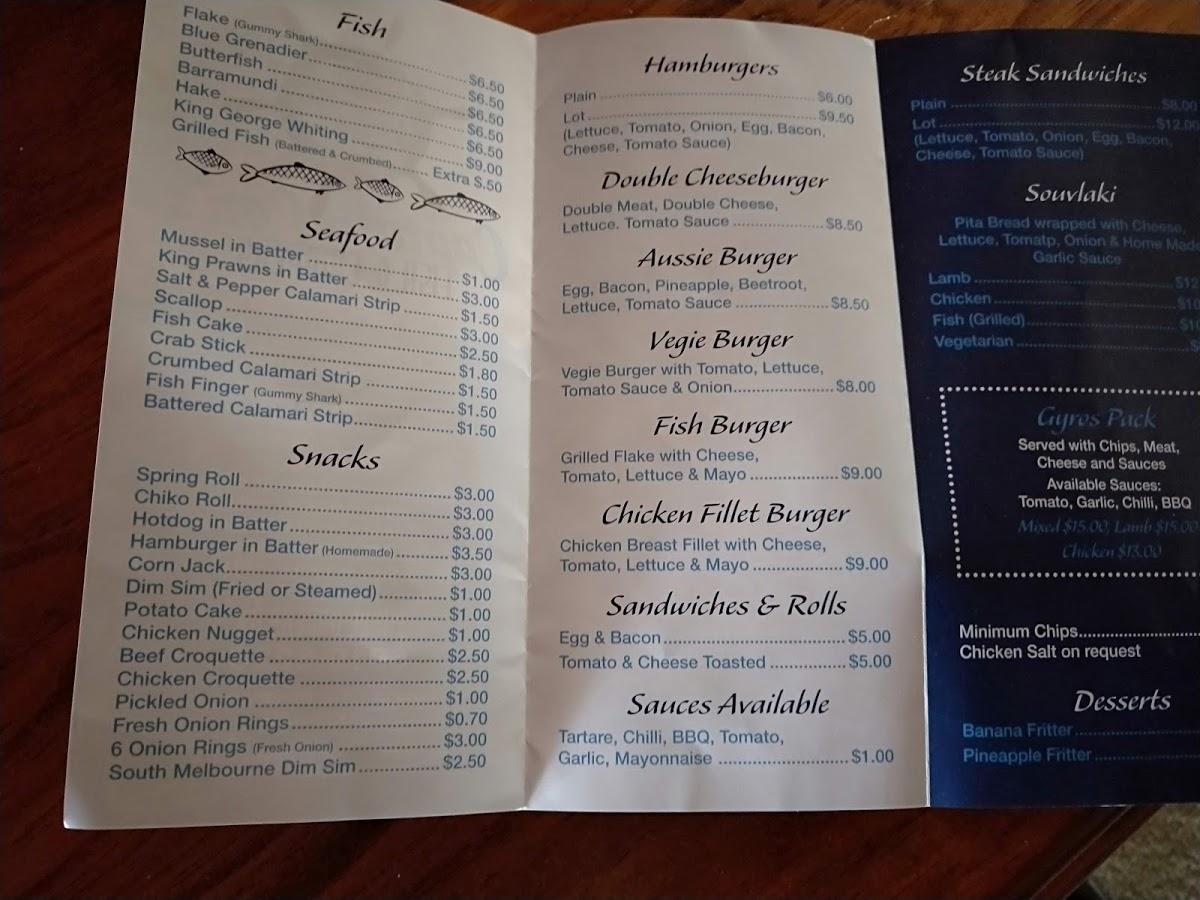 Fish
Flake (Gummy Shark)........ $6.50
Blue Grenadier........ $6.50
Butterfish ........ $6.50
Barramundi ........ $6.50
Hake ........ $6.50
King George Whiting ........ $9.00
Grilled Fish (Battered & Crumbed)........ Extra $.50
Seafood
Mussel in Batter ........ $1.00
King Prawns in Batter ........ $3.00
Salt & Pepper Calamari Strip ........ $1.50
Scallop ........ $3.00
Fish Cake ........ $2.50
Crab Stick ........ $1.80
Crumbed Calamari Strip ........ $1.50
Fish Finger (Gummy Shark) ........ $1.50
Battered Calamari Strip........ $1.50
Snacks
Spring Roll ........ $3.00
Chiko Roll........ $3.00
Hotdog in Batter ........ $3.00
Hamburger in Batter (Homemade) ........ $3.50
Corn Jack........ $3.00
Dim Sim (Fried or Steamed)........ $1.00
Potato Cake ........ $1.00
Chicken Nugget........ $1.00
Beef Croquette ........ $2.50
Chicken Croquette ........ $2.50
Pickled Onion ........ $1.00
Fresh Onion Rings........ $0.70
6 Onion Rings (Fresh Onion) ........ $3.00
South Melbourne Dim Sim ........ $2.50
Hamburgers
Plain ........ $6.00
Lot ........ $9.50
(Lettuce, Tomato, Onion, Egg, Bacon,
Cheese, Tomato Sauce)
Double Cheeseburger
Double Meat, Double Cheese,
Lettuce. Tomato Sauce ........ $8.50
Aussie Burger
Egg, Bacon, Pineapple, Beetroot,
Lettuce, Tomato Sauce ........ $8.50
Vegie Burger
Vegie Burger with Tomato, Lettuce,
Tomato Sauce & Onion........ $8.00
Fish Burger
Grilled Flake with Cheese,
Tomato, Lettuce & Mayo ........ $9.00
Chicken Fillet Burger
Chicken Breast Fillet with Cheese,
Tomato, Lettuce & Mayo ........ $9.00
Sandwiches & Rolls
Egg & Bacon........ $5.00
Tomato & Cheese Toasted ........ $5.00
Sauces Available
Tartare, Chilli, BBQ, Tomato,
Garlic, Mayonnaise ........ $1.00
Steak Sandwiches
Plain ........ $8.00
Lot ........ $12.00
(Lettuce, Tomato, Onion, Egg, Bacon,
Cheese, Tomato Sauce)
Souvlaki
Pita Bread wrapped with Cheese,
Lettuce, Tomatp, Onion & Home Mad
Garlic Sauce
Lamb ........ $12
Chicken ........
Fish (Grilled)........
Vegetarian ........
Gyros Pack
Served with Chips, Meat,
Cheese and Sauces
Available Sauces:
Tomato, Garlic, Chilli, BBQ
Mixed $15.00, Lamb $15.00
Chicken $13.00
Minimum Chips........
Chicken Salt on request
Desserts
Banana Fritter........
Pineapple Fritter........